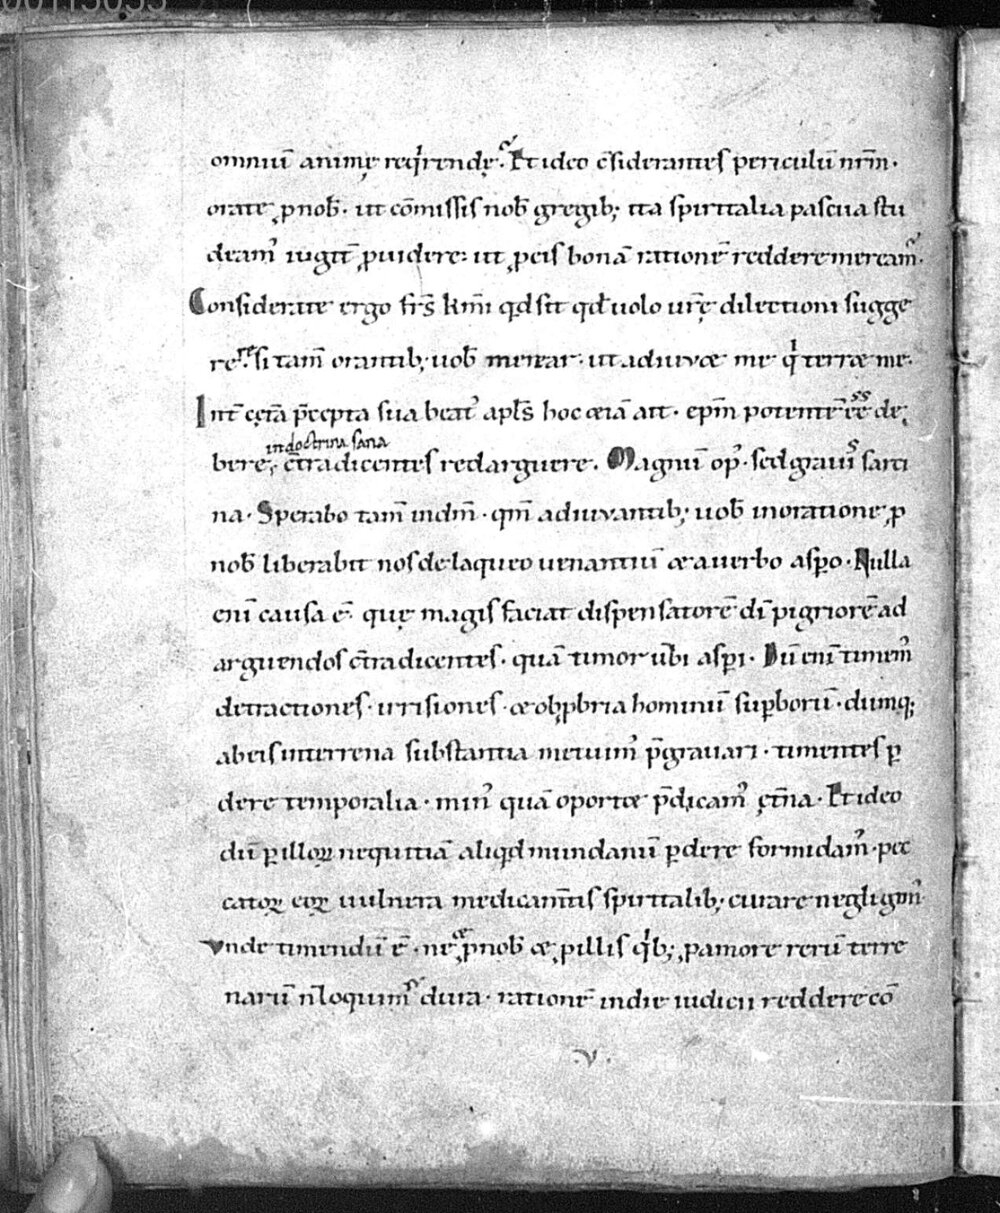 00113033
omniū animę reqͥrendę. Et ideo c̄siderantes periculū nr̄m.
orate ꝓ nob̄. ut cōmissis nob̄ gregib; ita spiritalia pascua stu
deamꝰ iugit̄ ꝓuidere. ut ꝓ eis bonā rationē reddere mereamꝰ.
Considerate ergo frs̄ km̄i qd̄ sit qd̄ uolo ur̄ę dilectioni sugge
rere. si tam̄ orantib; uob̄ merear. ut adiuv& me qͥ terr& me.
Int̄ cęt̄a p̄cepta sua beatꝰ apl̄s hoc &iā ait. epm̄ potentē ēē de
in doctrina sana
bere, &c̄tradicentes redarguere. Magnū opꝰ. sed grauis sarci
na. Sperabo tam̄ in dn̄m. qm̄ adiuvantib; uob̄ in oratione, ꝓ
nob̄ liberabit nos de laqueo uenantiū & a uerbo asꝑo. Nulla
eni᷎ causa ē. quę magis faciat dispensatorē dī pigriorē ad
arguendos c̄tradicentes. quā timor ūbi asꝑi. Dū enī timemꝰ
detractiones. irrisiones. & obꝓbria hominū suꝑborū. dumq;
ab eis in terrena substantia metuimꝰ p̄grauari. timentes ꝑ
dere temporalia. minꝰ quā oport& p̄dicamꝰ ęt̄na. Et ideo
dū ꝑ illoꝝ nequitiā aliqd̄ mundanū ꝑdere formidamꝰ. pec
catoꝝ eoꝝ uulnera medicam̄tis spiritalib; curare negligimꝰ
Vnde timendū ē. ne & ꝓ nob̄ & ꝓ illis qͥb; ꝓ amore rerū terre
narū n̄ loquimꝰ diuina. rationē in die iudicii reddere cō
.v.